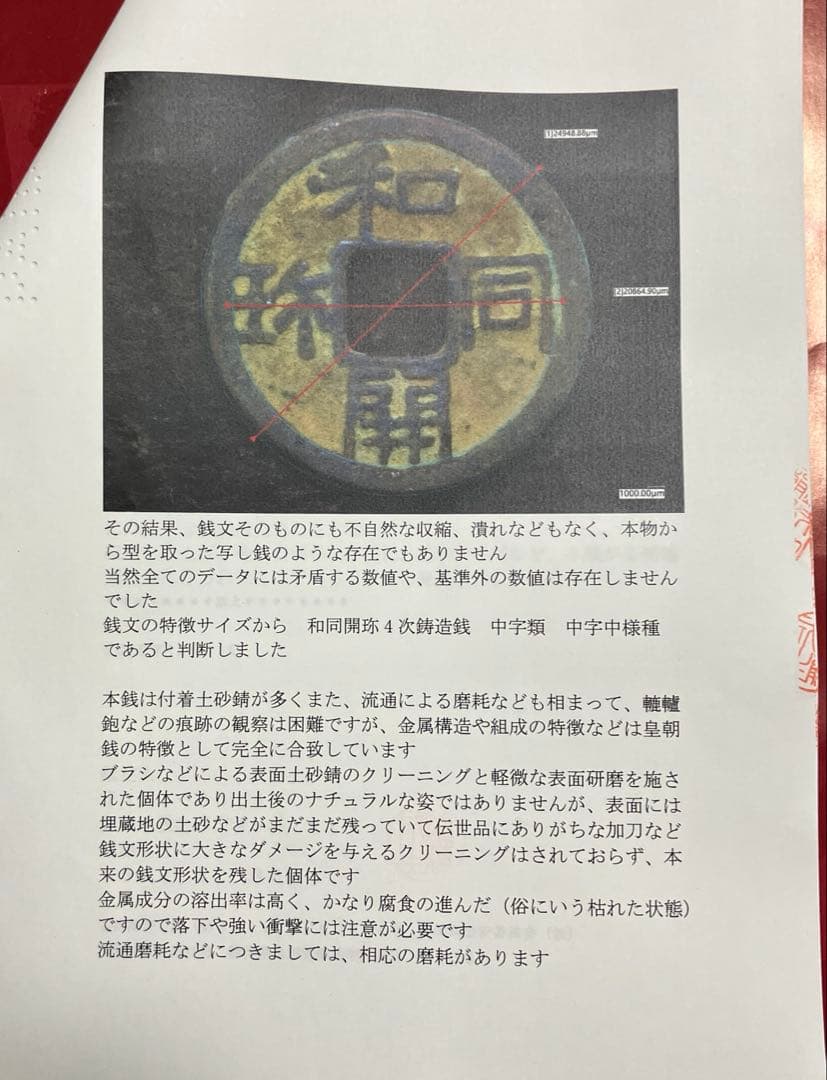 [1]24948.88μm
和
珎 同
開
[2]20864.90μm
1000.00μm
その結果、銭文そのものにも不自然な収縮、潰れなどもなく、本物か
ら型を取った写し銭のような存在でもありません
当然全てのデータには矛盾する数値や、基準外の数値は存在しません
でした
銭文の特徴サイズから　和同開珎4次鋳造銭　中字類　中字中様種
であると判断しました
本銭は付着土砂錆が多くまた、流通による磨耗なども相まって、轆轤
鉋などの痕跡の観察は困難ですが、金属構造や組成の特徴などは皇朝
銭の特徴として完全に合致しています
ブラシなどによる表面土砂錆のクリーニングと軽微な表面研磨を施さ
れた個体であり出土後のナチュラルな姿ではありませんが、表面には
埋蔵地の土砂などがまだまだ残っていて伝世品にありがちな加刀など
銭文形状に大きなダメージを与えるクリーニングはされておらず、本
来の銭文形状を残した個体です
金属成分の溶出率は高く、かなり腐食の進んだ（俗にいう枯れた状態）
ですので落下や強い衝撃には注意が必要です
流通磨耗などにつきましては、相応の磨耗があります